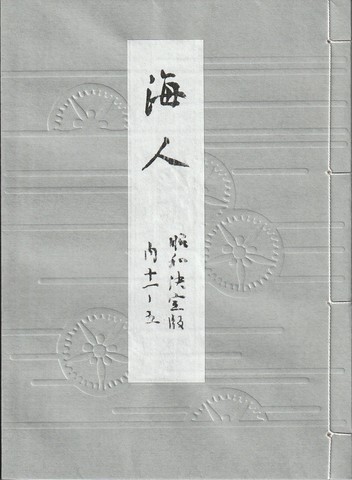 海人
昭和決定版
内十一ノ五